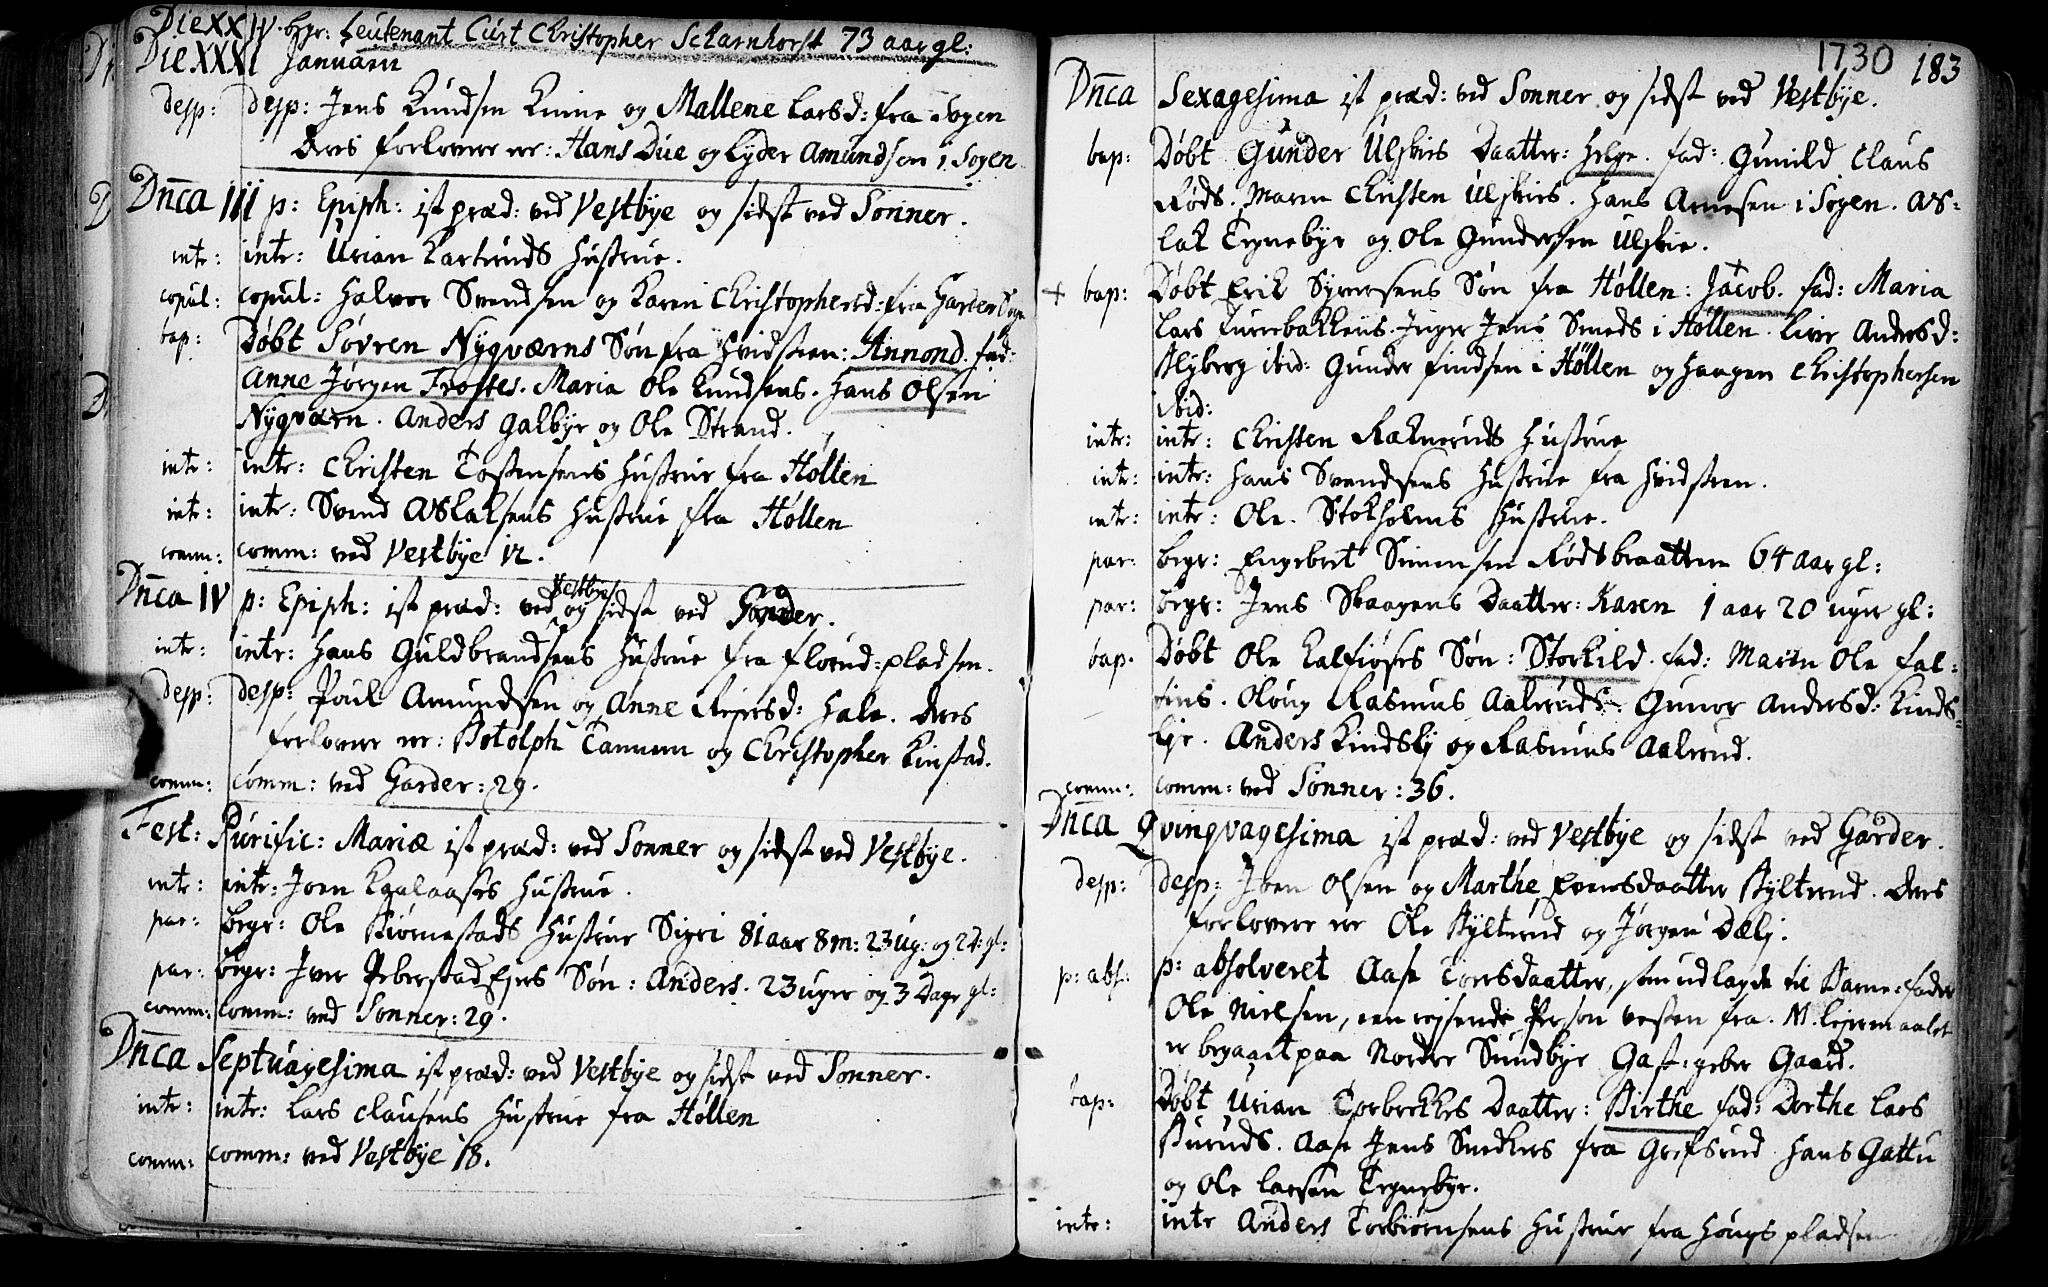 Die XXIV. bgr: Leutenant Curt Christopher Scharnhorst 73 aar gl:
Die XXXI Januarii
desp: desp: Jens Knudsen Kinne og Mallene Larsd: fra Sogen
Deres forlovere er: Hans Due og Lyder Amundsen i Sogen
Dnca III p: Epiph: ist præd: ved Vestbye og sidst ved Sonner.
intr: intr: Urian Karlruds Hustrue.
copul: copul: Halvor Svendsen og Karen Christophersd: fra Garder Sogn
bap: Døbt Søvren Nyqværns Søn fra Hvidsteen: Annond. fad:
Anne Jørgen Frostes. Maria Ole Knudsens. Hans Olsen
Nyqværn. Anders Galbye og Ole Strand.
intr: intr: Christen Tostensens Hustrue fra Hollen
intr: intr: Svend Aslaksens Hustrue fra Hollen
comm: comm: ved Vestbye 12.
Dnca IV p: Epiph: ist præd: ved Vestbye og sidst ved Garder.
intr: intr: Hans Guldbrandsens Hustrue fra Florud-pladsen.
desp: desp: Poul Amundsen og Anne Rejersd: Hale. Deres
forlovere er: Botolph Tannum og Christopher Kinstad.
comm: comm: ved Garder: 29.
Fest: Purific: Mariæ ist præd: ved Sonner og sidst ved Vestbye.
intr: intr: Joen Egelaases Hustrue.
par: begr: Ole Kiørnestads Hustrue Sigri 81 aar 8 m: 23 ug: og 2 d: gl:
par: begr: Iver Peberstad Ejes Søn: Anders. 23 uger og 3 Dage gl:
comm: comm: ved Sonner: 29.
Dnca Septuagesima ist præd: ved Vestbye og sidst ved Sonner.
intr: intr: Lars Clausens Hustrue fra Hollen
comm: comm: ved Vestbye 18.
1730 183
Dnca Sexagesima ist præd: ved Sonner og sidst ved Vestbye.
bap: Døbt Gunder Ulskies Daatter: Helge. fad: Gunild Claus
Røds. Maren Christen Ulskies. Hans Arnesen i Sogen. As-
lak Tegnebye og Ole Gundersen Ulskie.
+ bap: Døbt Erik Syversens Søn fra Hollen: Jacob. fad: Maria
Lars Turrebakkens. Inger Jens Smeds i Hollen. Live Andersd:
Nyberg ibid: Gunder Findsen i Hollen og Haagen Christophersen
ibid:
intr: intr: Christen Rakneruds Hustrue
intr: intr: Hans Svendsens Hustrue fra Hvidsteen.
intr: intr: Ole Stokholms Hustrue.
par: begr: Engebret Simensen Rødsbraatten 64 aar gl:
par: begr: Jens Skaagens Daatter: Karen 1 aar 20 uger gl:
bap: Døbt Ole Kalfiøses Søn: Storkild. fad: Maren Ole Fal-
tins. Oloug Rasmus Aaleruds. Gunor Andersd: Kinds-
lye. Anders Kindslj og Rasmus Aalerud.
comm: comm: ved Sonner: 36.
Dnca Qvinqvagesima ist præd: ved Vestbye og sidst ved Garder.
desp: desp: Joen Olsen og Marthe Evensdaatter Kylterud. Deres
forlovere er Ole Kylterud og Jørgen Dælj.
p: abs: p: absolveret Aase Toresdaatter, som udlagde til Barne-fader
Ole Nielsen, een rejsende Person vesten fra. NB. Lejermaalet
er begaaet paa Nordre Sundbye Gast-geber Gaard.
bap: Døbt Urian Torbrekkes Daatter: Birthe fad: Dorthe Lars
Kuruds. Aase Jens Snedkers fra Grefsrud. Hans Gattu
og Ole Larsen Tegnebye.
intr: intr Anders Torbiørnsens Hustrue fra Hougs pladsen